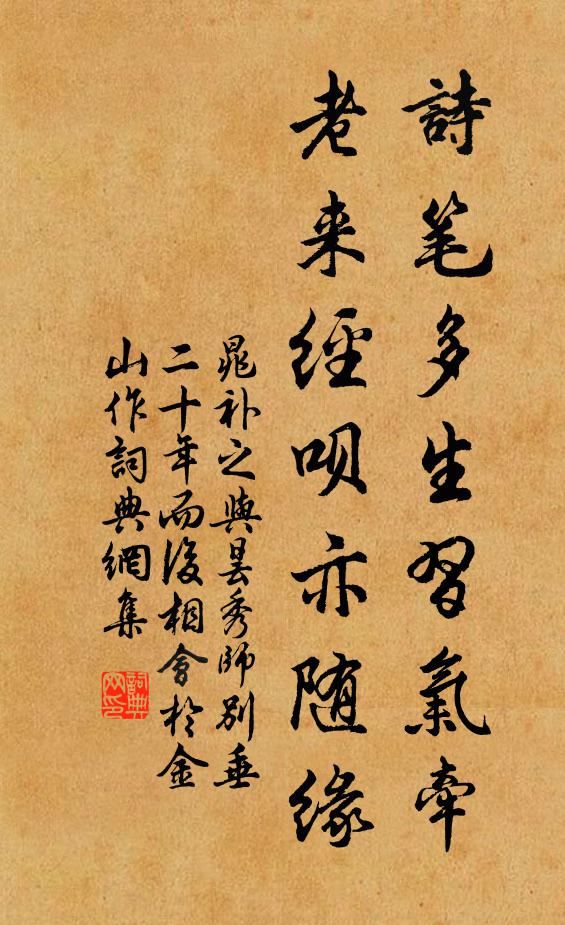 詩笔多生習氣牽
老来經呗亦随緣
晁补之與昙秀師别垂
二十年而後相會於金
山作詞典網集
詞典
网印